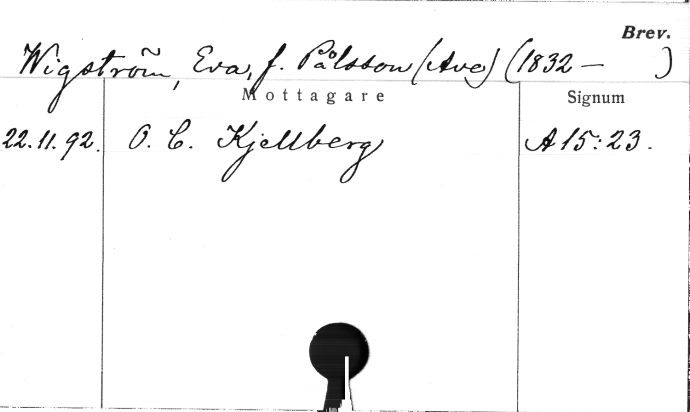 Brev.
Wigström, Eva, f. Pålsson (Ave) (1832 – )
Mottagare Signum
22.11.92. O. C. Kjellberg A 15:23.